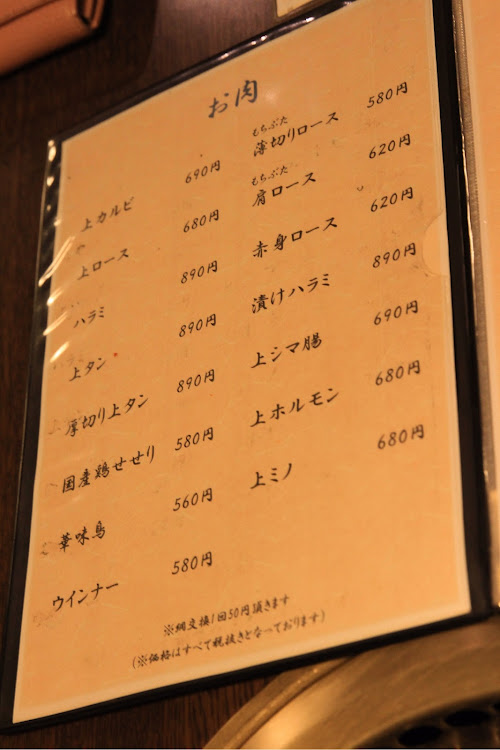 お肉
上カルビ 690円
上ロース 680円
ハラミ 890円
上タン 890円
厚切り上タン 890円
国産鶏せせり 580円
華味鳥 560円
ウインナー 580円
もちぶた
薄切りロース 580円
もちぶた
肩ロース 620円
赤身ロース 620円
漬けハラミ 890円
上シマ腸 690円
上ホルモン 680円
上ミノ 680円
※網交換1回50円頂きます
(※価格はすべて税抜きとなっております)